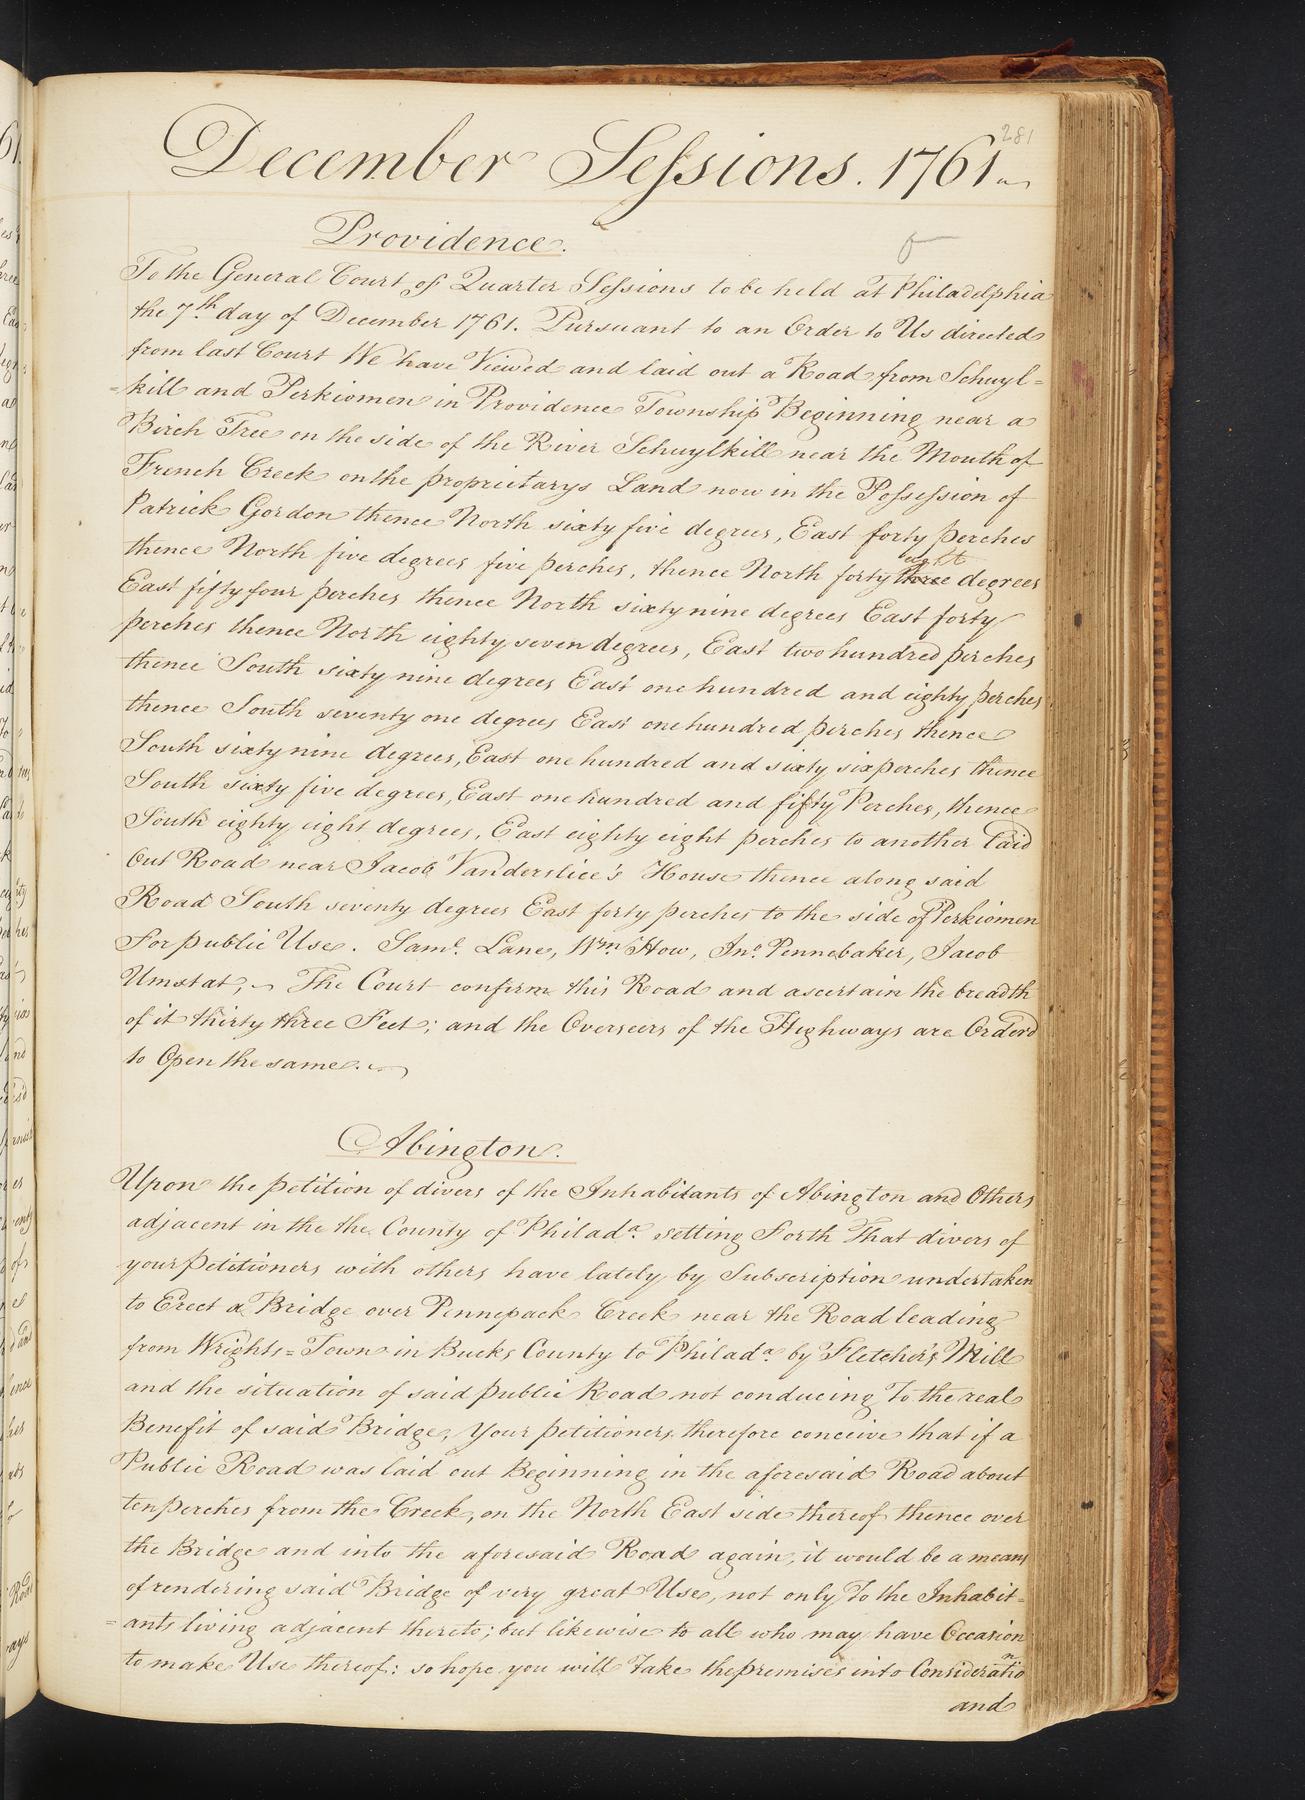 281
December Sessions. 1761
Providence.
To the General Court of Quarter Sessions to be held at Philadelphia
the 7.th day of December 1761. Pursuant to an Order to Us directed
from last Court We have Viewed and laid out a Road from Schuyl=
=kill and Perkiomen in Providence Township Beginning near a
Birch Tree on the side of the River Schuylkill near the Mouth of
French Creek on the proprietarys Land now in the Possession of
Patrick Gordon thence North sixty five degrees, East forty perches
thence North five degrees five perches, thence North forty three eight degrees
East fifty four perches thence North sixty nine degrees East forty
perches thence North eighty seven degrees, East two hundred perches
thence South sixty nine degrees East one hundred and eighty perches
thence South seventy one degrees East one hundred perches thence
South sixty nine degrees, East one hundred and sixty six perches thence
South sixty five degrees, East one hundred and fifty Perches, thence
South eighty eight degrees, East eighty eight perches to another laid
Out Road near Jacob Vanderslice's House thence along said
Road South seventy degrees East forty perches to the side of Perkiomen
For public Use. Saml. Lane, Wm. How, Jno. Pennebaker, Jacob
Umstat, The Court confirm this Road and ascertain the breadth
of it thirty three Feet; and the Overseers of the Highways are Order'd
to Open the same.
Abington.
Upon the petition of divers of the Inhabitants of Abington and Others
adjacent in the the County of Philada. setting Forth That divers of
your petitioners with others have lately by Subscription undertaken
to Erect a Bridge over Pennepack Creek near the Road leading
from Wrights=Town in Bucks County to Philada. by Fletcher's Mill
and the situation of said public Road not conducing To the real
Benefit of said Bridge, Your petitioners therefore conceive that if a
Public Road was laid out Beginning in the aforesaid Road about
ten perches from the Creek, on the North East side thereof thence over
the Bridge and into the aforesaid Road again, it would be a means
of rendering said Bridge of very great Use, not only To the Inhabit=
=ants living adjacent thereto; but likewise to all who may have Occasion
to make Use thereof: so hope you will Take the premises into Consideration
and